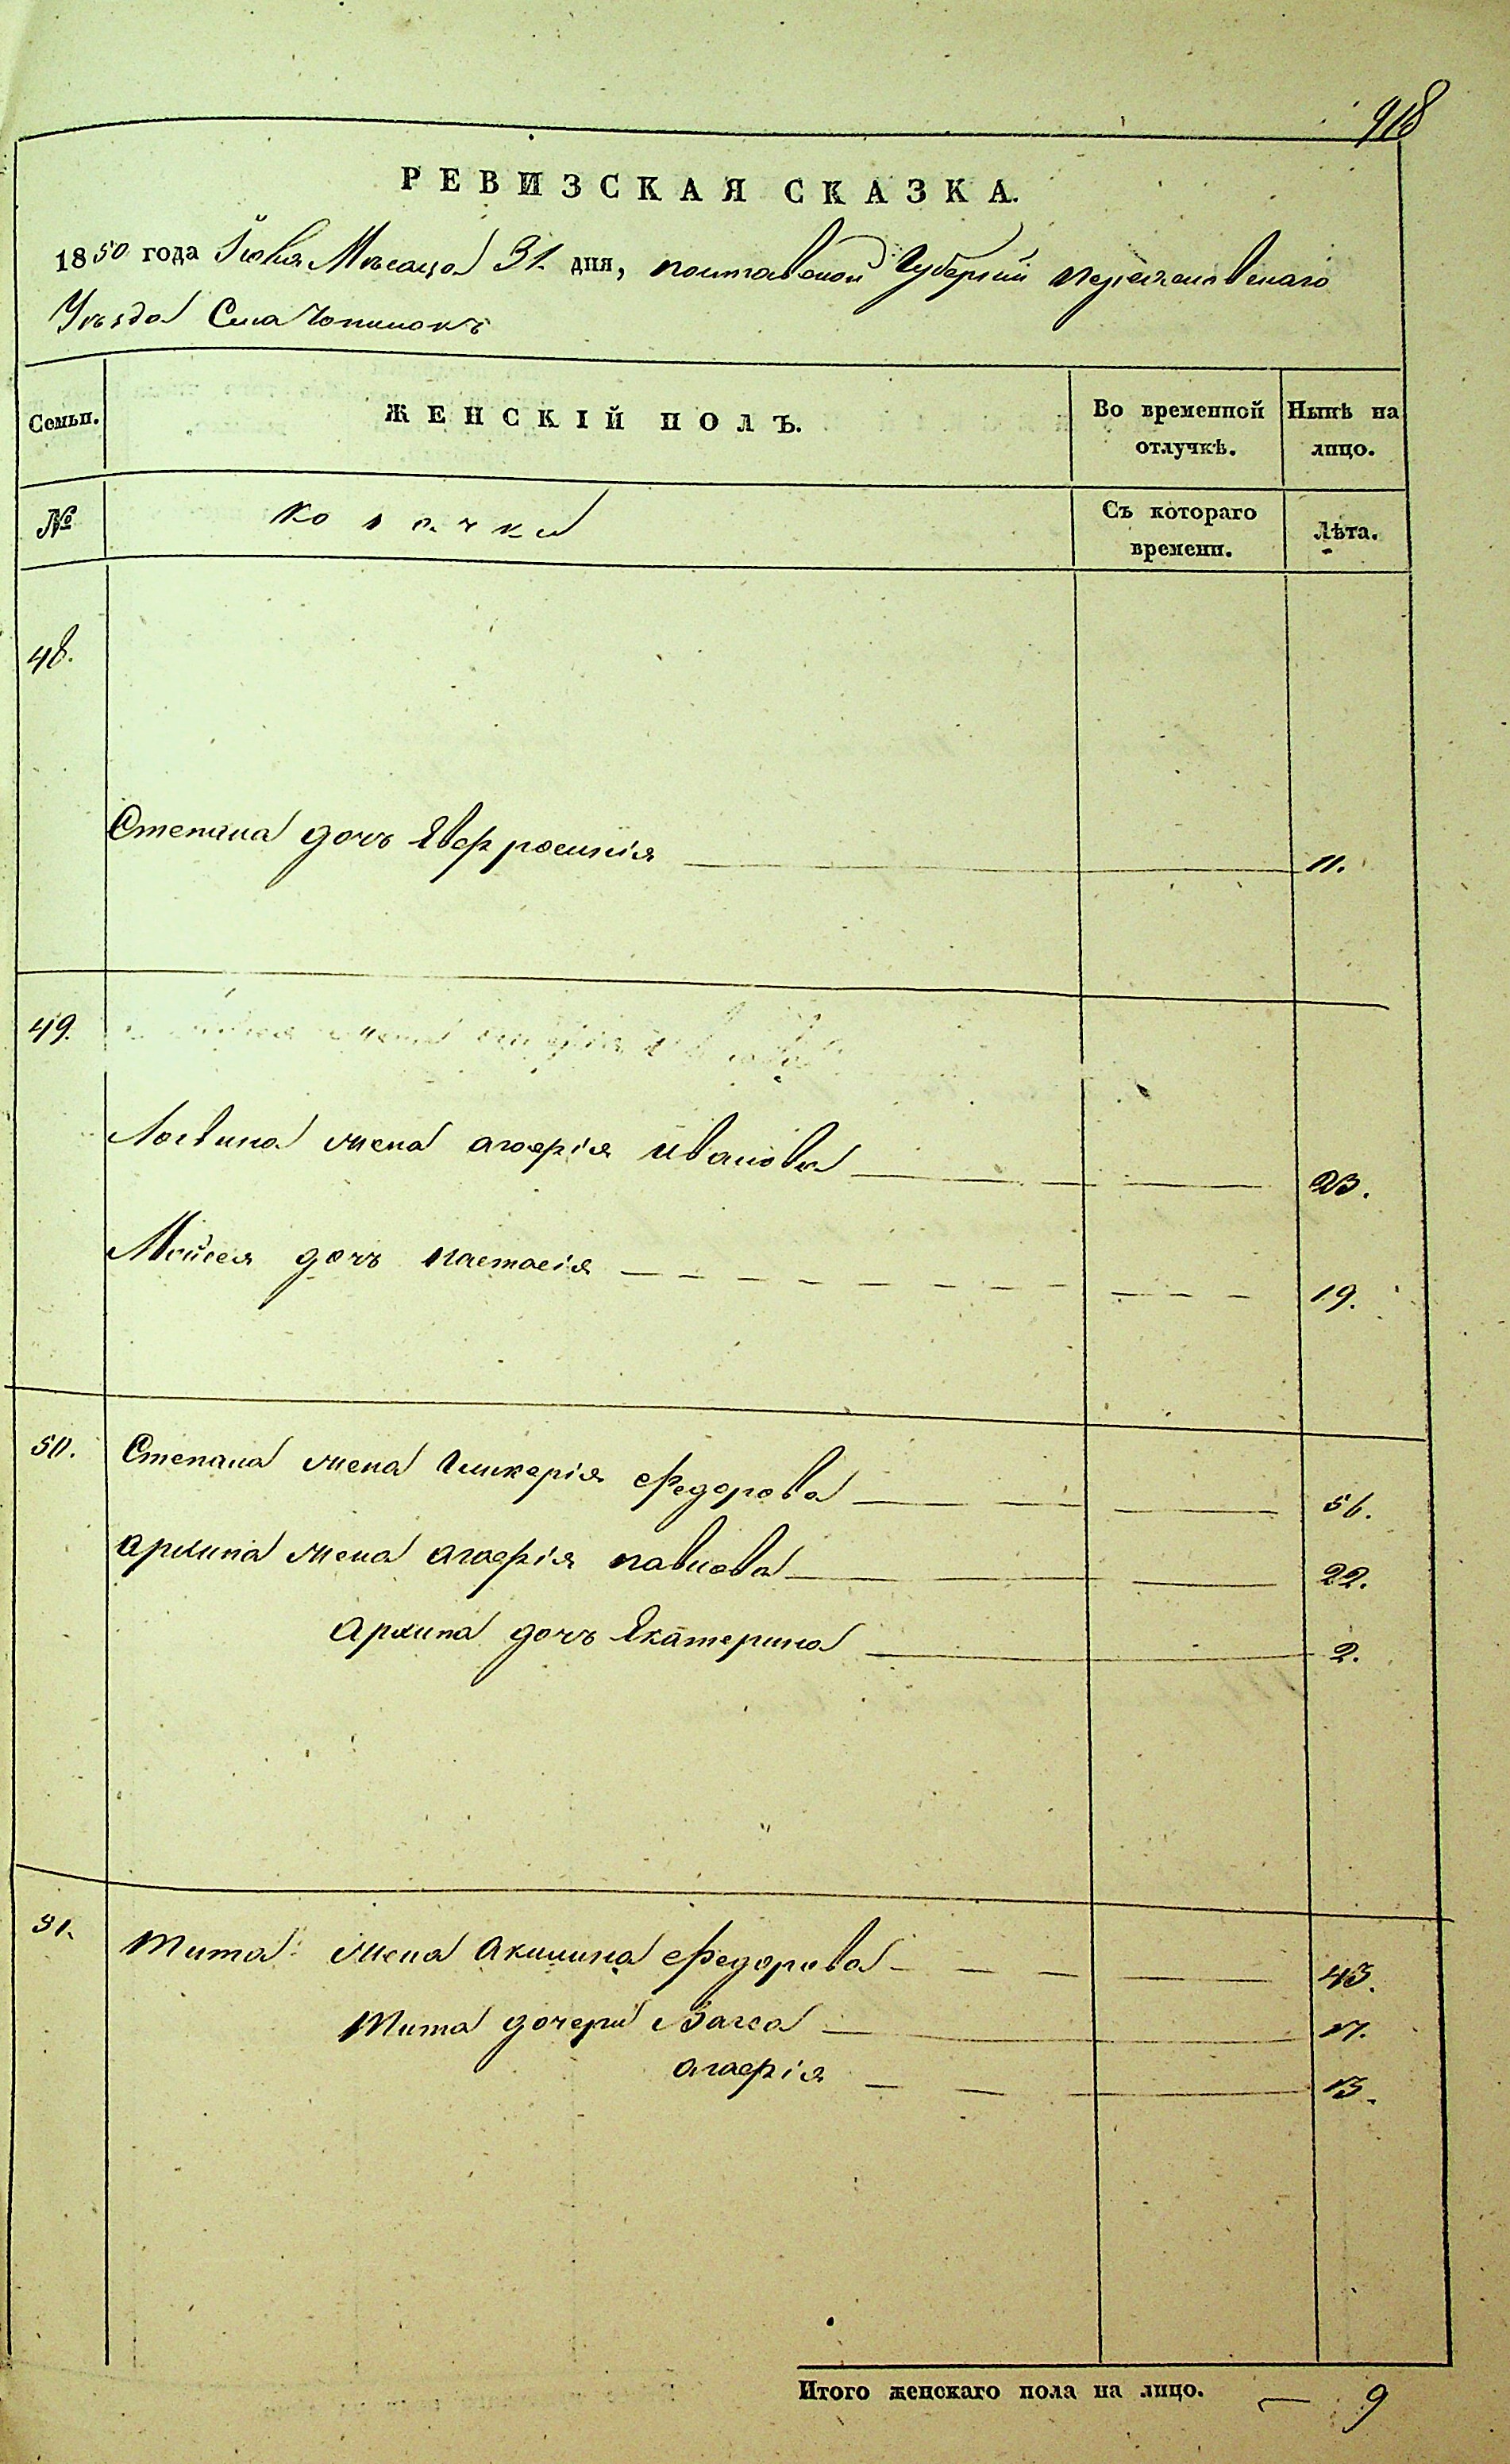 918
РЕВИЗСКАЯ СКАЗКА.
1850 года Июля Месяца 31. дня, Полтавской Губернии Переяславскаго
Уезда Села Чопилокъ
Семьи. ЖЕНСКІЙ ПОЛЪ. Во временной отлучкѣ. Нынѣ на лицо.
№ Козачки Съ котораго времени. Лѣта.
48.
Степана дочь Евфросинія 11.
49.
Логвина жена Агафія Иванова 23.
Мойсея дочь Настасія 19.
50. Степана жена Гликерія Федорова 56.
Архипа жена Агафія Павлова 22.
Архипа дочь Екатерина 2.
51. Тита жена Акилина Федорова 43.
Тита дочери Васса 17.
Агафія 13.
Итого женскаго пола на лицо. — 9